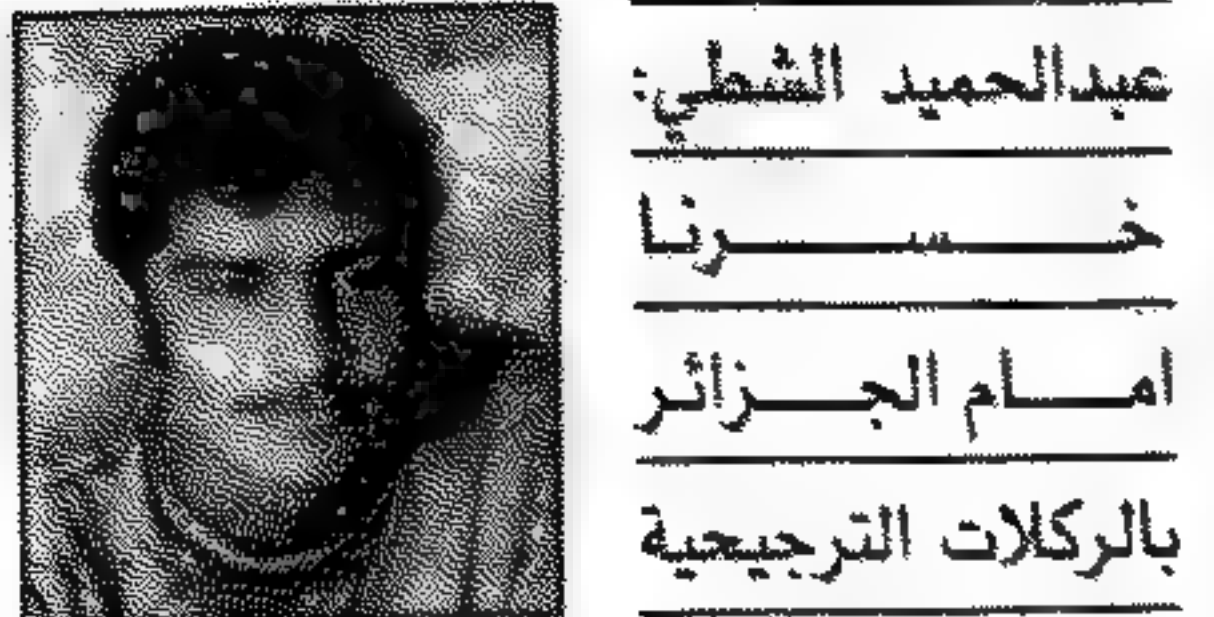 عبدالحميد الشطي:
خسرنا
امام الجزائر
بالركلات الترجيحية